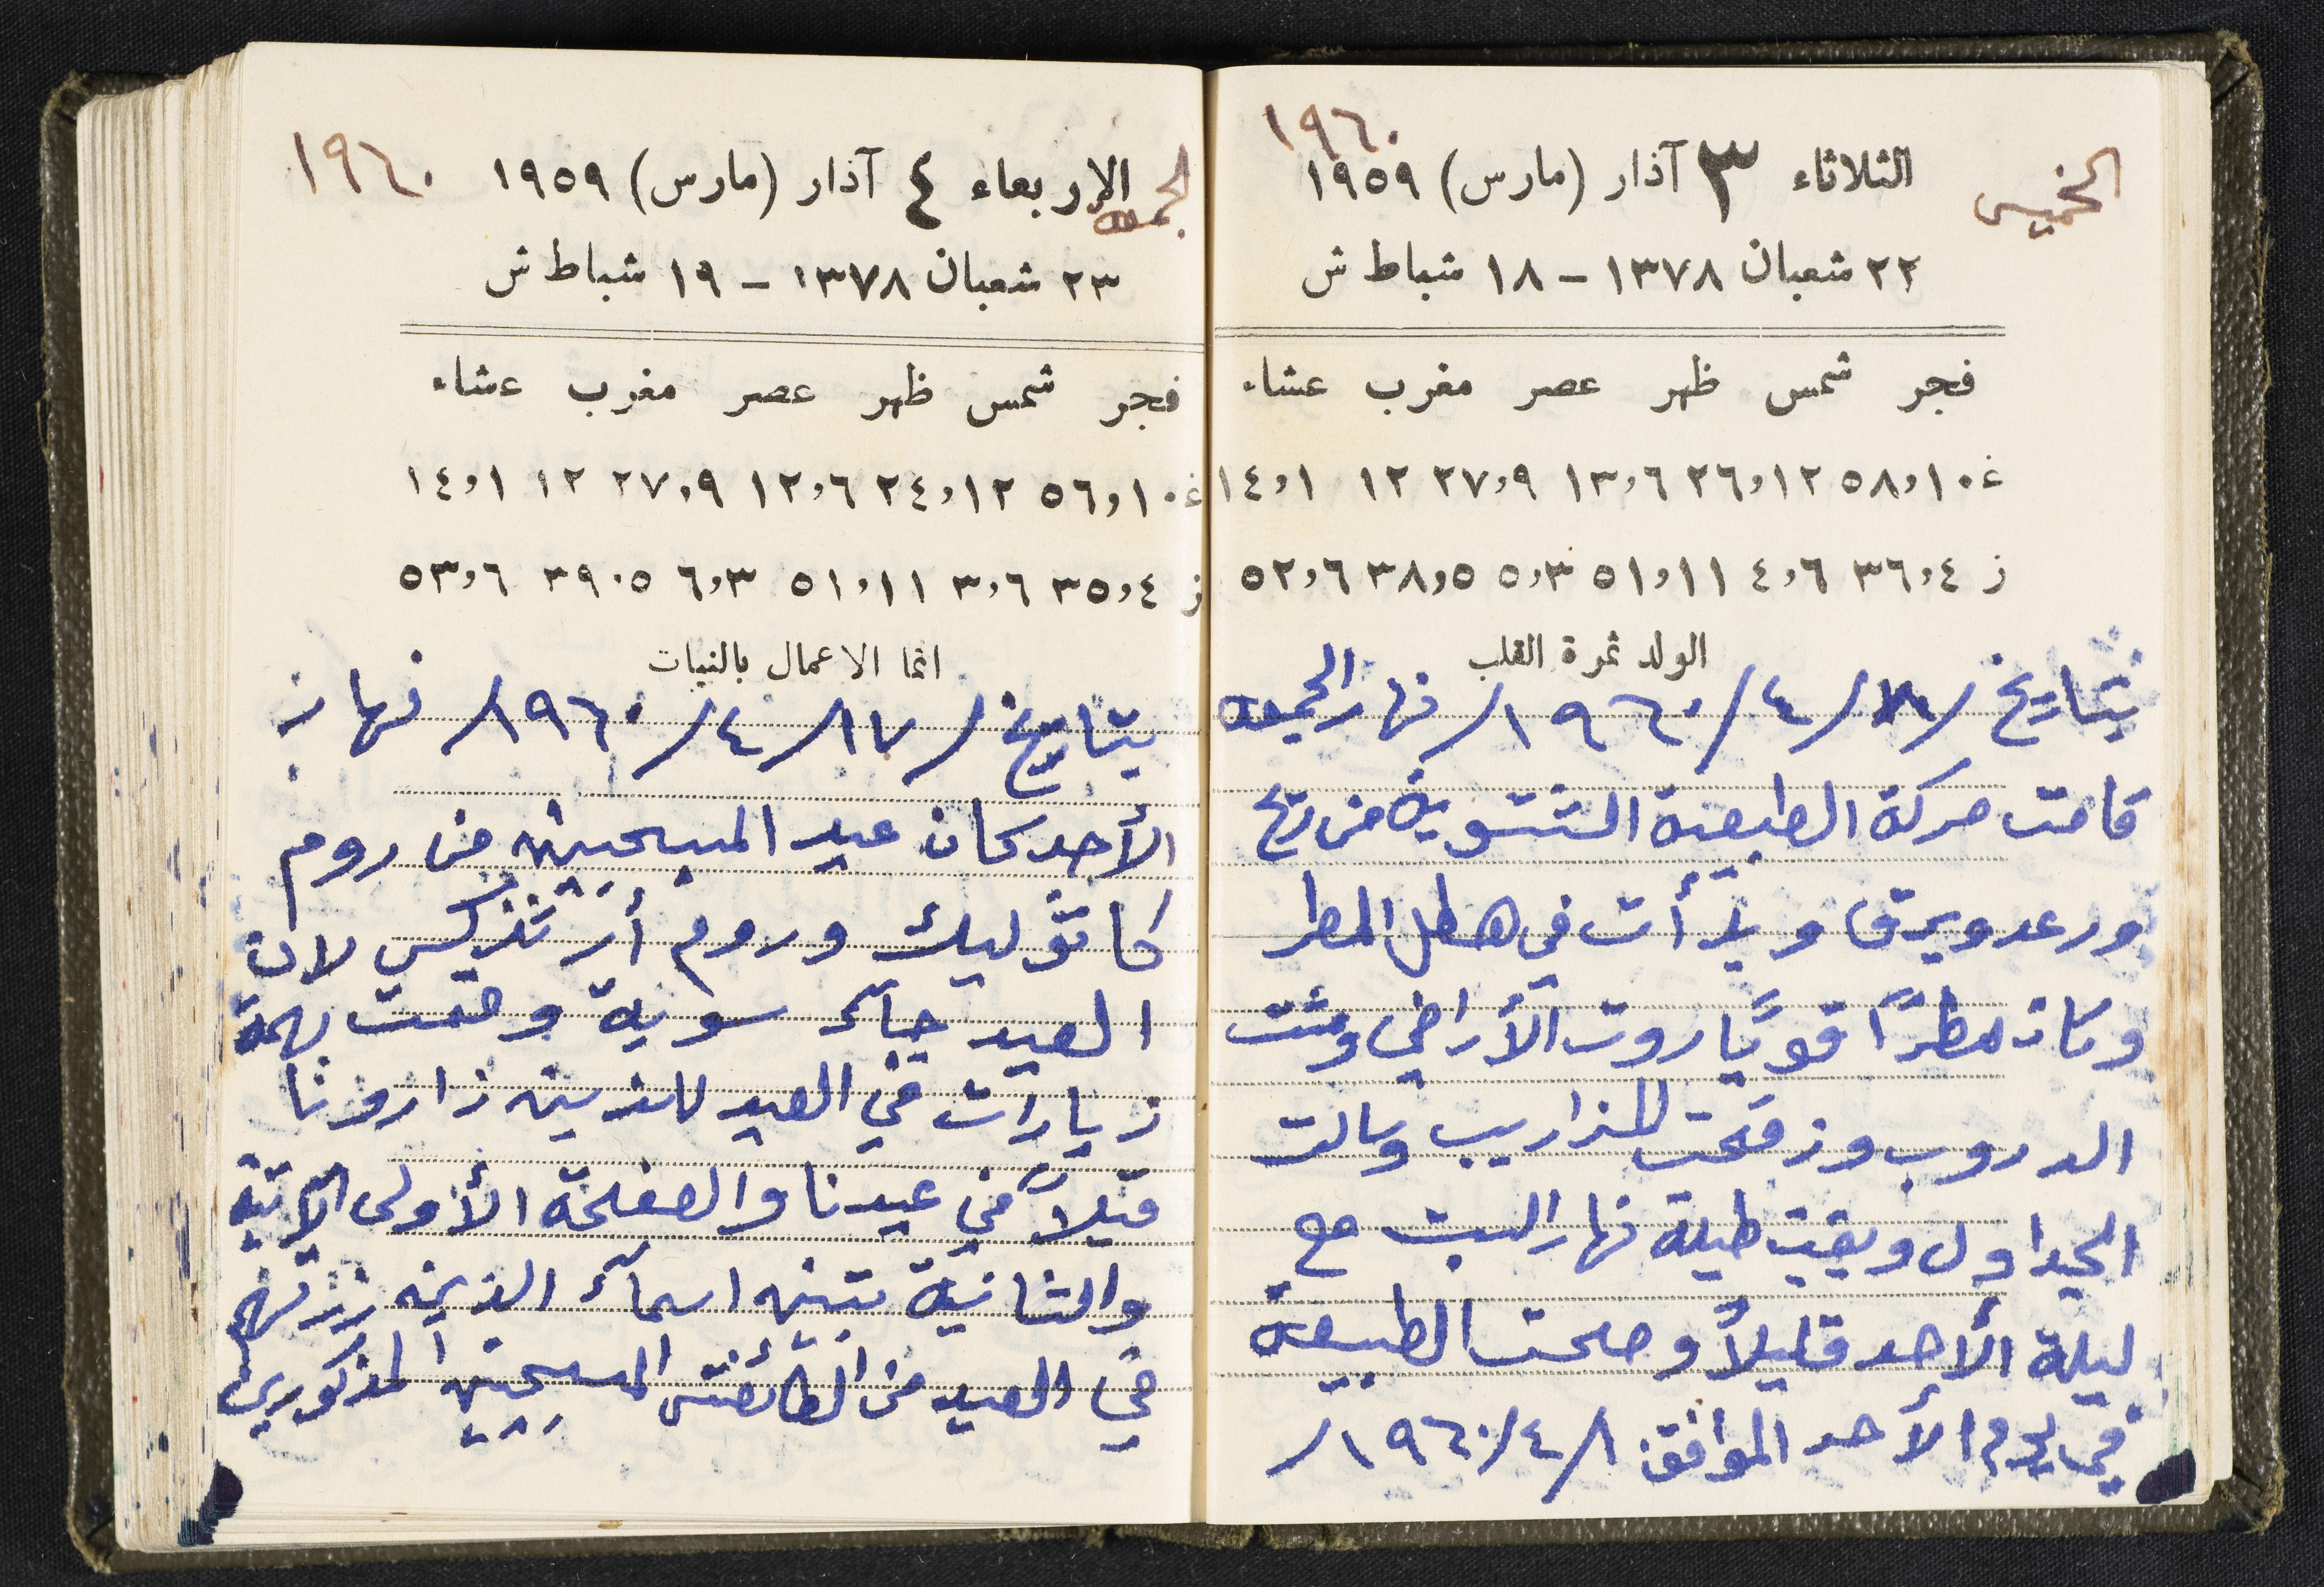 ١٩٦٠
الخميس
الثلاثاء ٣ آذار (مارس) ١٩٥٩
٢٢ شعبان ١٣٧٨ - ١٨ شباط ش
فجر شمس ظهر عصر مغرب عشاء
غ ٥٨,١٠ ٢٦,١٢ ١٣,٦ ٢٧,٩ ١٢ ١٤,١
ز ٣٦,٤ ٤,٦ ٥١,١١ ٥,٣ ٣٨,٥ ٥٢,٦
الولد ثمرة القلب
بتاريخ / /٤/١٩٦٠/ نهار الجمعه
قامت حركة الطبيعة الشتوية من ريح
ورعد وبرق وبدأت في هطل المطر
وكان مطرًا قويًا روت الأراضي ومشت
الدروب وزقحت المزاريب وسالت
الجداول وبقيت طيلة نهار السبت مع
ليلة الأحد قليلاً وصحت الطبيعة
في يوم الأحد الموافق /٤/١٩٦٠/
الجمعه
١٩٦٠
الاربعاء ٤ آذار (مارس) ١٩٥٩
٢٣ شعبان ١٣٧٨ - ١٩ شباط ش
فجر شمس ظهر عصر مغرب عشاء
غ ٥٦,١٠ ٢٤,١٢ ١٢,٦ ٢٧,٩ ١٢ ١٤,١
ز ٣٥,٤ ٣,٦ ٥١,١١ ٦,٣ ٣٩,٥ ٥٣,٦
انما الاعمال بالنيات
بتاريخ /١٧/٤/١٩٦٠/ نهار
الأحد كان عيد المسيحيين من روم
كاتوليك وروم أرثذكس لان
العيد جآء سوية وقمت بهمة
زيارات في العيد للذين زارونا
قبلاً في عيدنا والصفحة الأولى الآتية
والثانية تبين اسمآء الذين زرتهم
في العيد من الطائفتين المسيحيين المذكورين